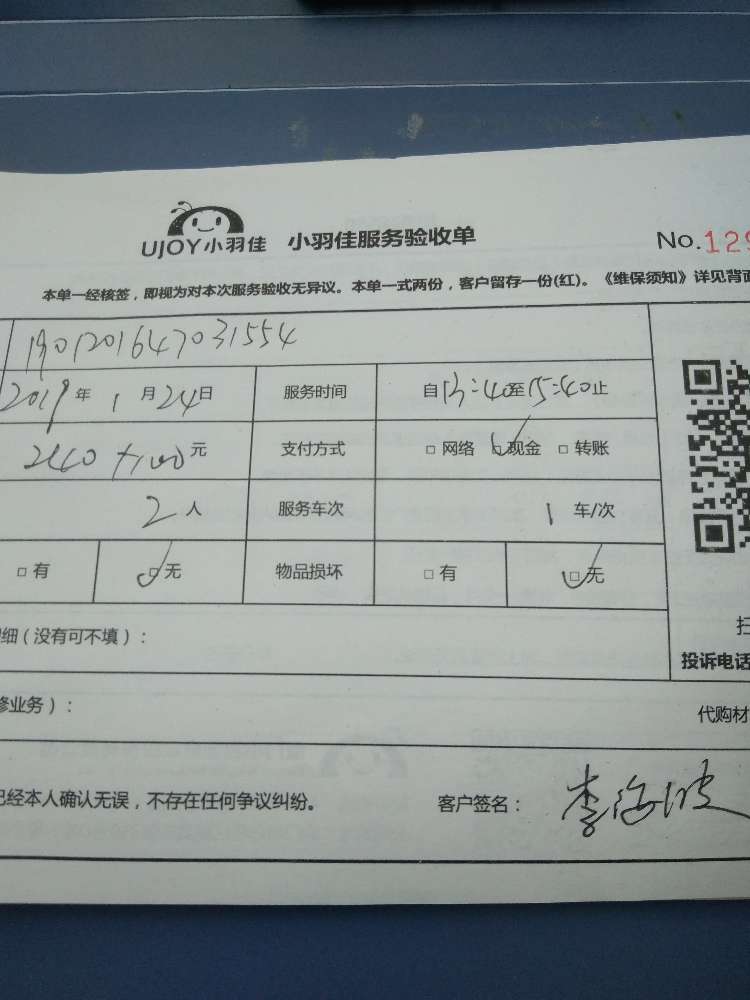 UJOY小羽佳 小羽佳服务验收单 No.129
本单一经核签，即视为对本次服务验收无异议。本单一式两份，客户留存一份(红)。《维保须知》详见背面
190120164703 1554
2019年1月24日 服务时间 自13:40至15:40止
+100元 支付方式 □网络 □现金 □转账
2人 服务车次 1车/次
□有 □无 物品损坏 □有 □无
细（没有可不填）：
投诉电话
修业务）：
代购材
已经本人确认无误，不存在任何争议纠纷。 客户签名：李海波